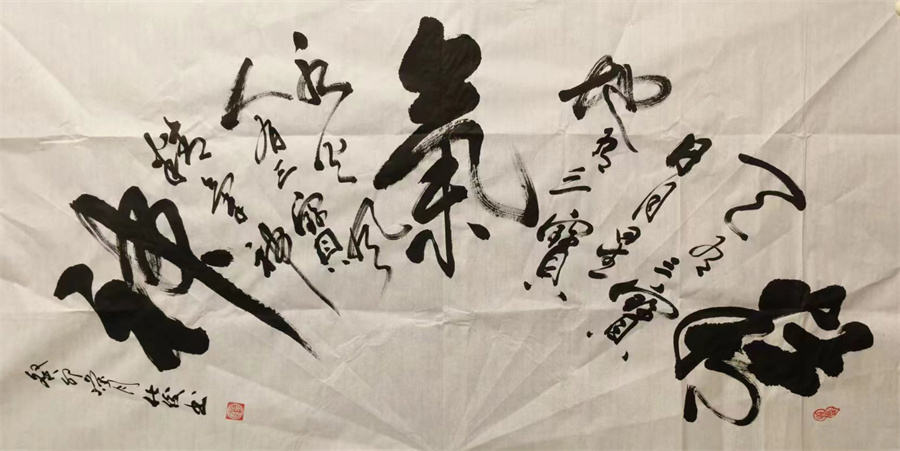 精
天有三寶
日月星
地有三寶
氣
水火風
人有三寶
精氣神
神
癸卯 月 書